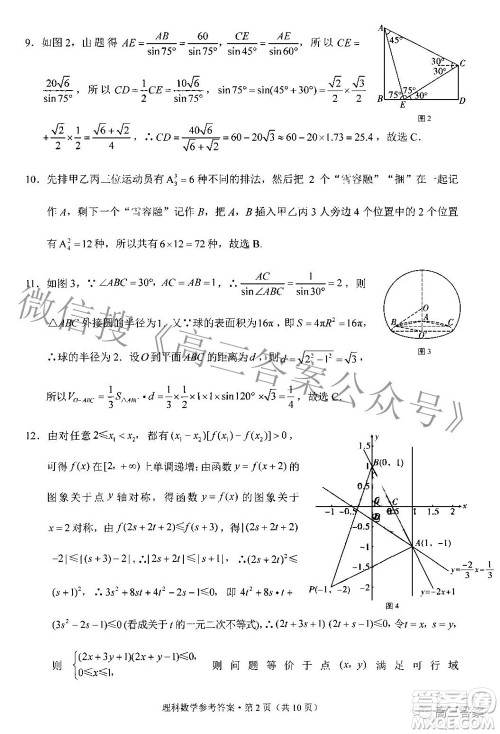 9．如图2，由题得 AE=AB/sin75°=60/sin75°，CE/sin45°=AE/sin60°，所以 CE=
20√6/sin75°，所以 CD=1/2CE=10√6/sin75°，sin75°=sin(45°+30°)=√2/2×√3/2
+√2/2×1/2=(√6+√2)/4，∴CD=40√6/(√6+√2)=60-20√3≈60-20×1.73=25.4，故选C．
A
45°
30°
C
30°
30°
B
E
D
图2
10．先排甲乙丙三位运动员有A₃³=6种不同的排法，然后把2个“雪容融”“捆”在一起记
作A，剩下一个“雪容融”记作B，把A，B插入甲乙丙3人旁边4个位置中的2个位置
有A₄²=12种，所以共有6×12=72种，故选B.
11．如图3，∵∠ABC=30°，AC=1，∴AC/sin∠ABC=1/sin30°=2，则
△ABC外接圆的半径为1，又∵球的表面积为16π，即S=4πR²=16π，
∴球的半径为2．设O到平面ABC的距离为d，则d=√(2²-1²)=√3，
所以V_{O-ABC}=1/3S_{△ABC}·d=1/3×1/2×1×1×sin120°×√3=1/4，故选C．
O
B
A
C
D
图3
12．由对任意2≤x₁<x₂，都有(x₁-x₂)[f(x₁)-f(x₂)]>0，
可得f(x)在[2，+∞)上单调递增；由函数y=f(x+2)的
图象关于点y轴对称，得函数y=f(x)的图象关于
x=2对称．由f(2s+2t+2)≤f(s+3)，得|(2s+2t+2)
-2|≤|(s+3)-2|，∴|2s+2t|≤|s+1|，∴(2s+2t)²≤
(s+1)²，∴3s²+8st-2s+4t²-1≤0，∴4t²+8s·t+
(3s²-2s-1)≤0(看成关于t的一元二次不等式)，∴(2t+3s+1)(2t+s-1)≤0，令s=x，t=y，
则{(2x+3y+1)(2x+y-1)≤0
0≤x≤1 则问题等价于点(x，y)满足可行域
y
x
B(0，1)
C
A(1，-1)
P(-1，-2)
y=-2/3x-1/3
y=-2x+1
图4
理科数学参考答案·第2页（共10页）
微信搜《高三答案公众号》
高三答案